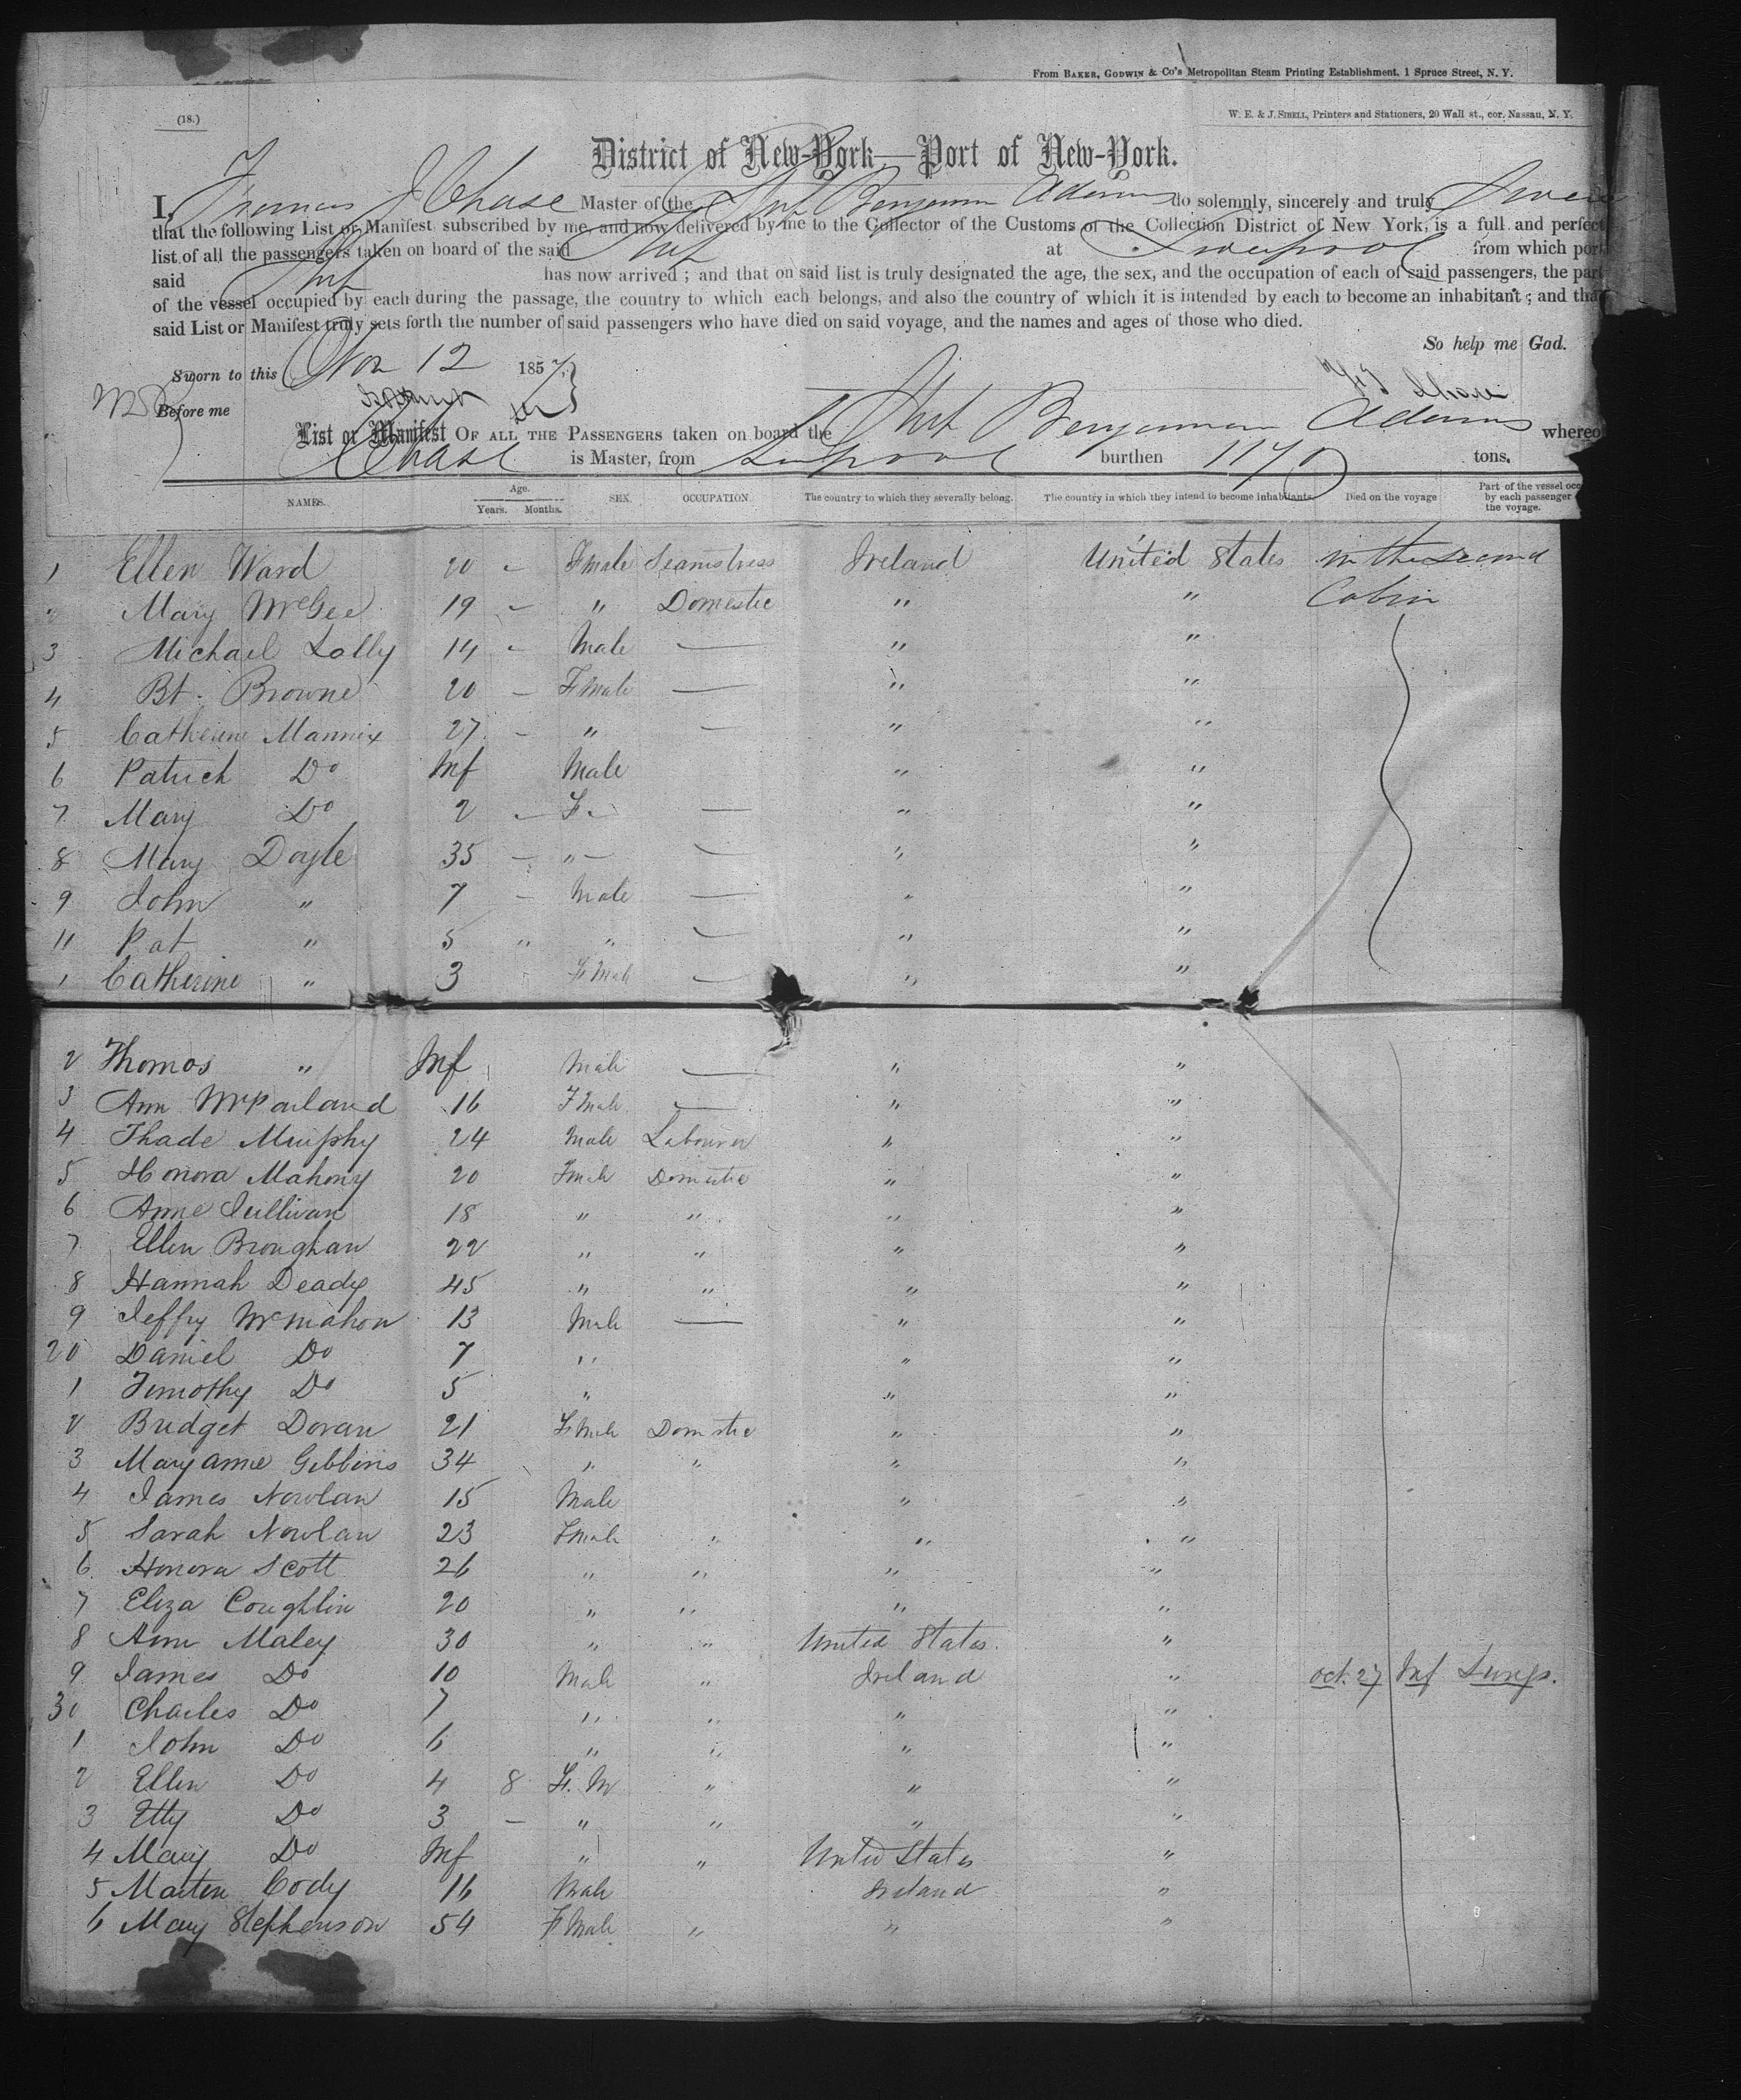 From BAKER, GODWIN & Co's Metropolitan Steam Printing Establishment, 1 Spruce Street, N. Y.
(18.)
W. E. & J. SIBELL, Printers and Stationers, 20 Wall st., cor. Nassau, N. Y.
District of New-York—Port of New-York.
I, Thomas J Chase Master of the Ship Benjamin Adams do solemnly, sincerely and truly Swear
that the following List or Manifest subscribed by me, and now delivered by me to the Collector of the Customs of the Collection District of New York, is a full and perfect
list of all the passengers taken on board of the said Ship at Liverpool from which port
said Ship has now arrived; and that on said list is truly designated the age, the sex, and the occupation of each of said passengers, the part
of the vessel occupied by each during the passage, the country to which each belongs, and also the country of which it is intended by each to become an inhabitant; and that
said List or Manifest truly sets forth the number of said passengers who have died on said voyage, and the names and ages of those who died.
So help me God.
Sworn to this Nov 12 1857
Before me
T J Chase
List or Manifest OF ALL THE PASSENGERS taken on board the Ship Benjamin Adams whereo
Chase is Master, from Liverpool burthen 1170 tons.
NAMES. Age. Years. Months. SEX. OCCUPATION. The country to which they severally belong. The country in which they intend to become inhabitants. Died on the voyage Part of the vessel occ by each passenger the voyage.
1 Ellen Ward 20 - Fmale Seamstress Ireland United States in the second
Mary McGee 19 - " Domestic " " Cabin
3 Michael Lally 14 - Male — " "
4 Bt. Browne 20 - Fmale — " "
5 Catherine Mannix 27 - " — " "
6 Patrick Do Inf Male " "
7 Mary Do 2 - F. — " "
8 Mary Doyle 35 - " — " "
9 John " 7 - Male — " "
11 Pat " 5 " " — " "
1 Catherine " 3 " Fmale — " "
2 Thomas " Inf Male — " "
3 Ann McParland 16 Fmale — " "
4 Thade Murphy 24 Male Labourer " "
5 Honora Mahony 20 Fmale Domestic " "
6 Anne Sullivan 18 " " " "
7 Ellen Broughan 22 " " " "
8 Hannah Deady 45 " " " "
9 Jeffry McMahon 13 Male — " "
20 Daniel Do 7 " " "
1 Timothy Do 5 " " "
2 Bridget Doran 21 Fmale Domestic " "
3 Mary anne Gibbins 34 " " " "
4 James Nowlan 15 Male " "
5 Sarah Nowlan 23 Fmale " " "
6 Honora Scott 26 " " " "
7 Eliza Coughlin 20 " " " "
8 Ann Maley 30 " " United States. "
9 James Do 10 Male " Ireland " Oct. 27 Inf Lungs.
30 Charles Do 7 " " " "
1 John Do 6 " " " "
2 Ellen Do 4 8 F. M " " "
3 Etty Do 3 - " " " "
4 Mary Do Inf " " United States "
5 Marten Cody 16 Male Ireland "
6 Mary Stephenson 54 Fmale " " "